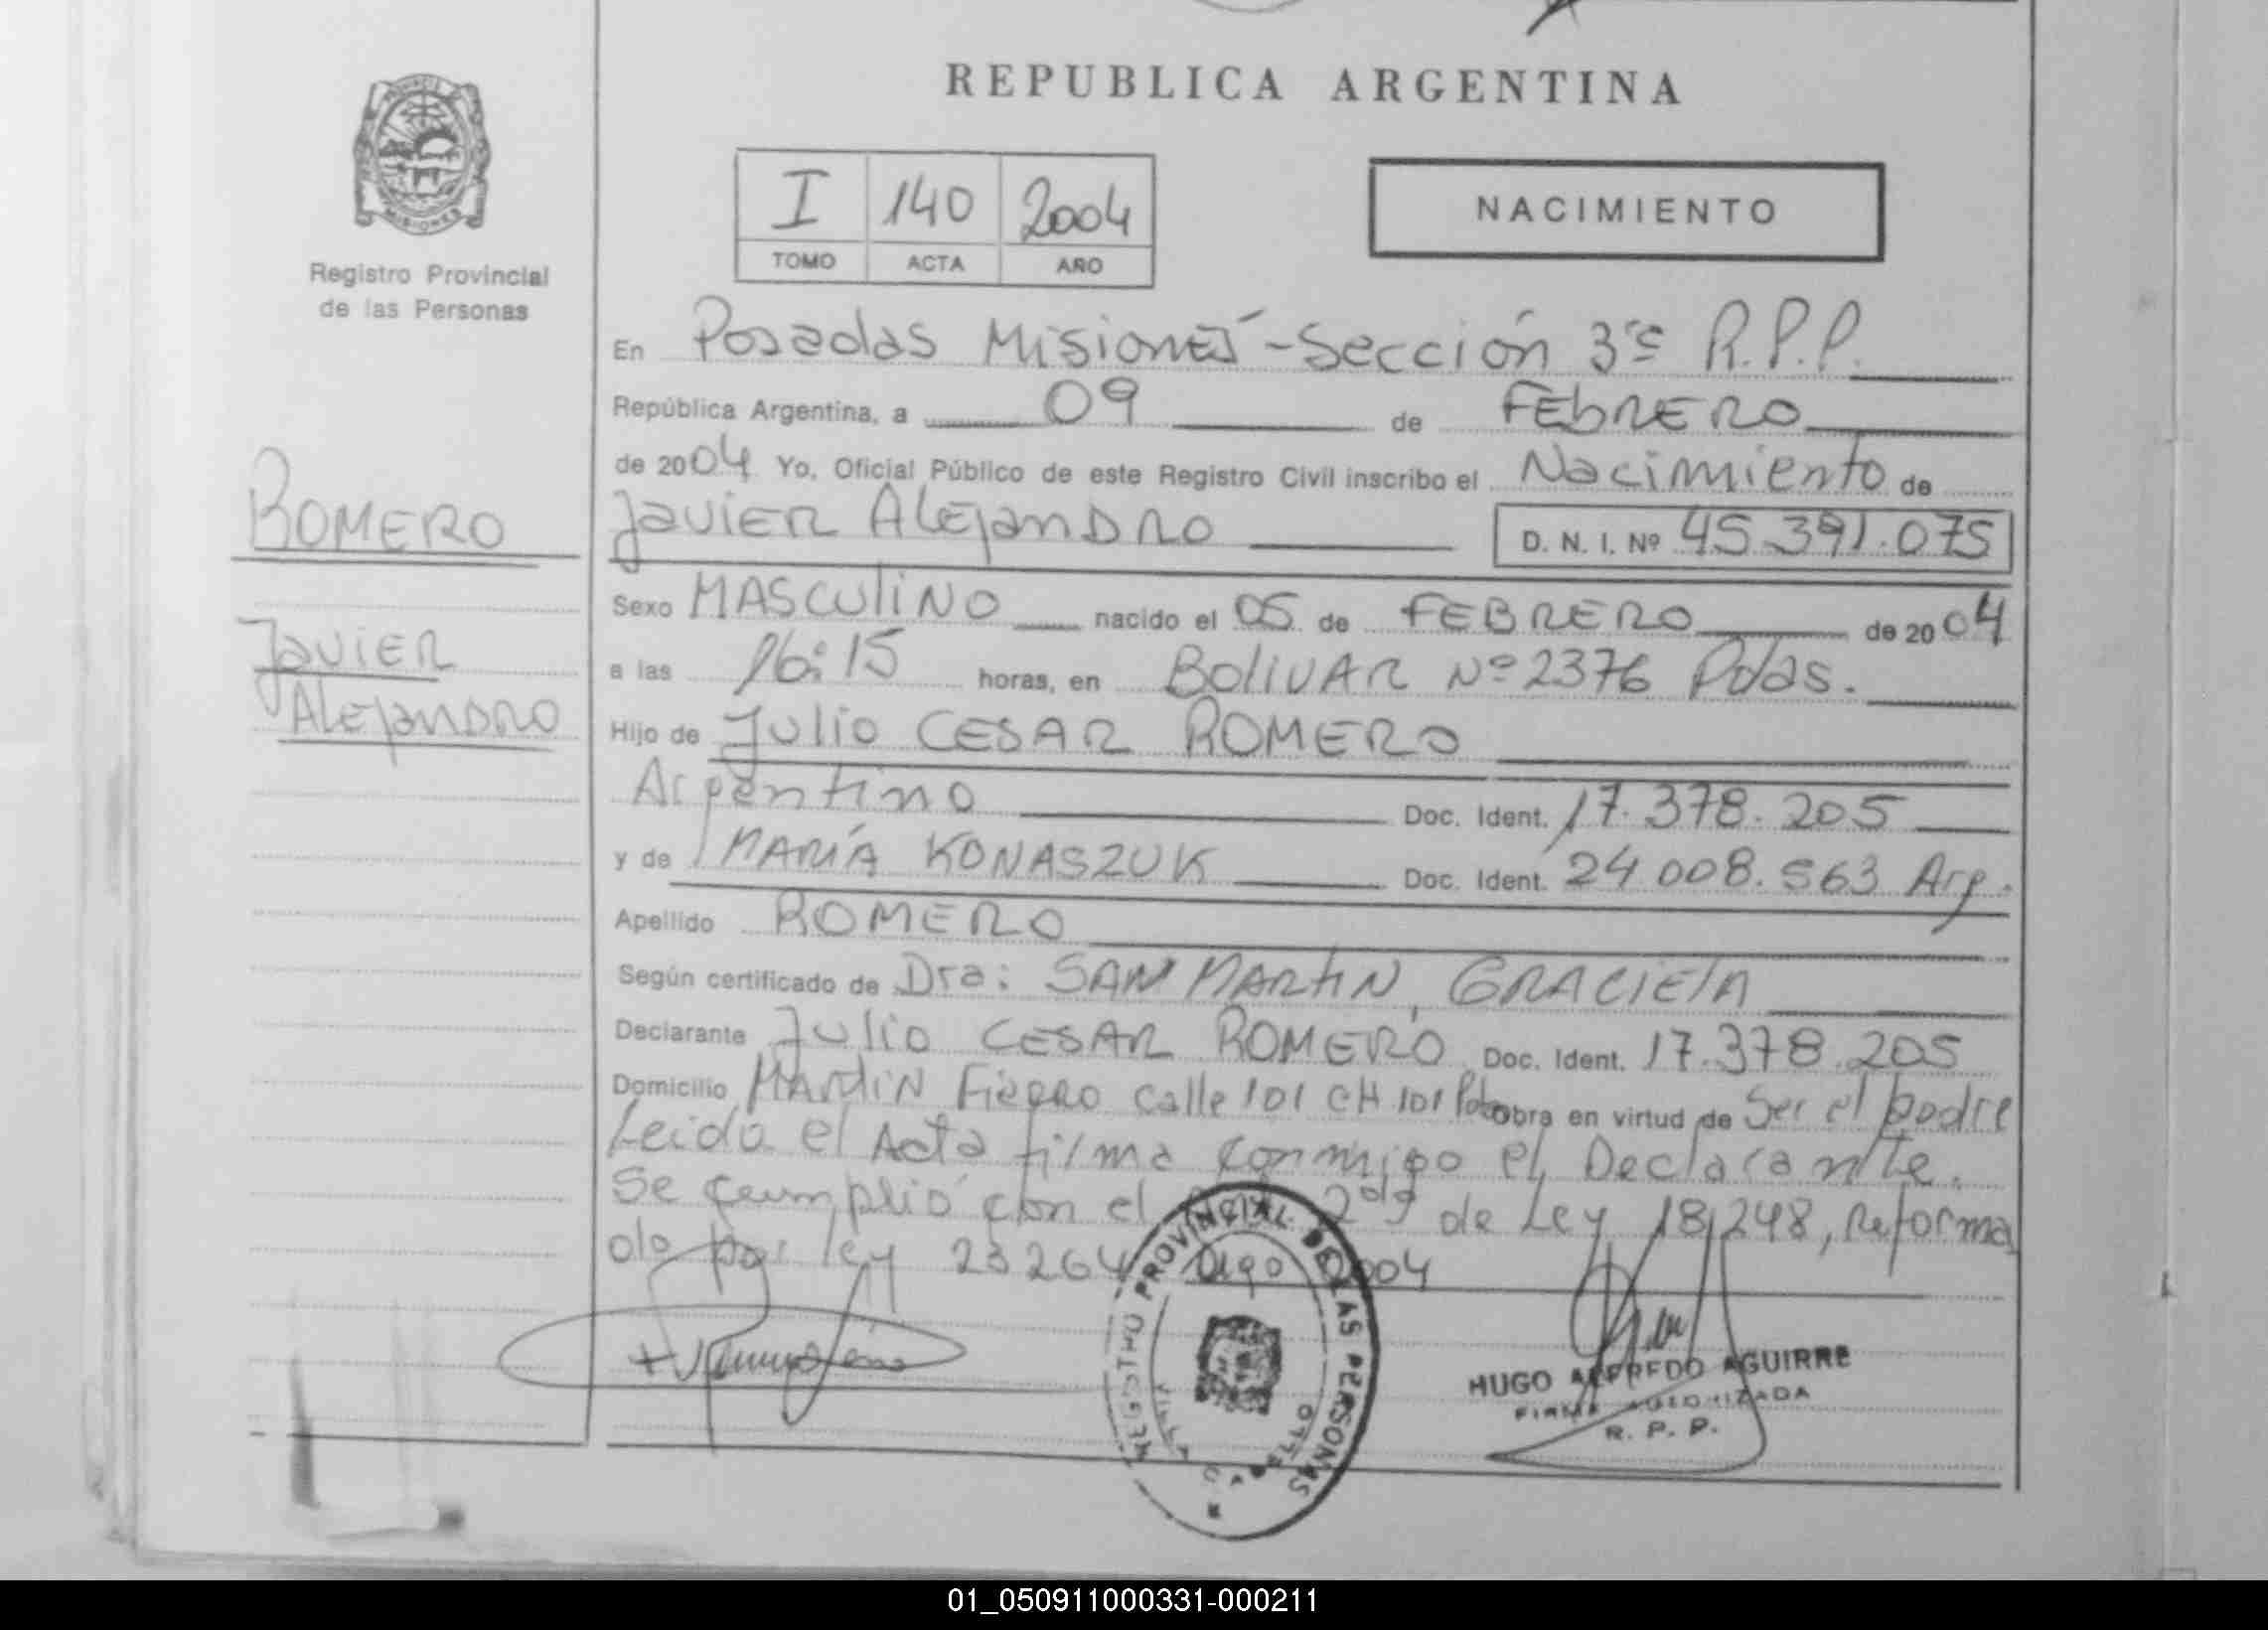 REPUBLICA ARGENTINA
MISIONES
Registro Provincial
de las Personas
I 140 2004
TOMO ACTA AÑO
NACIMIENTO
En Posadas Misiones - Sección 3ra R.P.P.
República Argentina, a 09 de FEbRERO
de 2004 Yo, Oficial Público de este Registro Civil inscribo el Nacimiento de
Javier Alejandro D. N. I. Nº 45.391.075
ROMERO
Javier
Alejandro
Sexo MASCULINO nacido el 05 de FEBRERO de 2004
a las 16:15 horas, en BOLIVAR Nº 2376 Pdas.
Hijo de Julio CESAR ROMERO
Argentino Doc. Ident. 17.378.205
y de MARÍA KONASZUK Doc. Ident. 24.008.563 Arg.
Apellido ROMERO
Según certificado de Dra: SAN MARTIN, GRACIELA
Declarante Julio CESAR ROMERO Doc. Ident. 17.378.205
Domicilio MARTIN FIERRO Calle 101 CH 101 obra en virtud de Ser el padre
Leida el Acta firma conmigo el Declarante.
Se cumplió con el 2do de Ley 18,248, Reforma
do por ley 23264 2004
REGISTRO PROVINCIAL DE LAS PERSONAS
VILLA CABELLO
HUGO ALFREDO AGUIRRE
FIRMA AUTORIZADA
R. P. P.
01_050911000331-000211